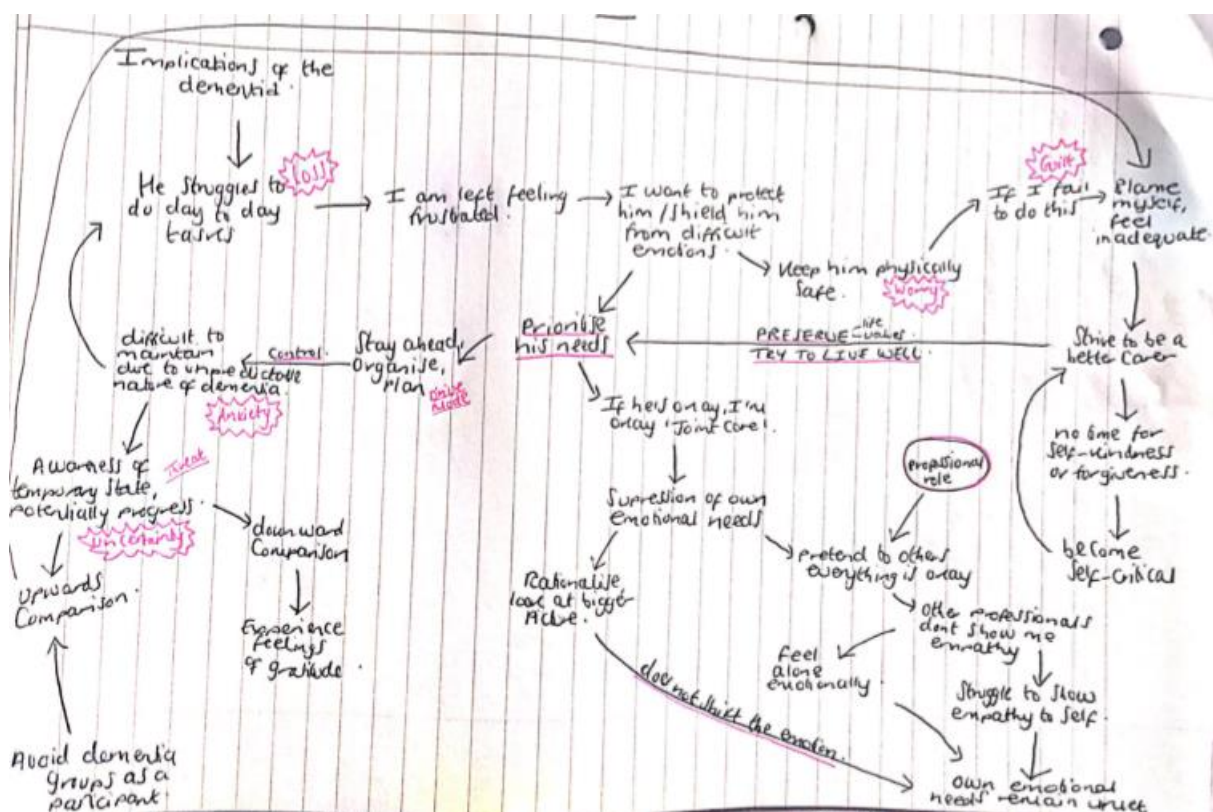 Implications of the
dementia.
He struggles to
do day to day
tasks
Loss
I am left feeling
frustrated.
I want to protect
him/shield him
from difficult
emotions.
Keep him physically
safe.
Worry
Guilt
If I fail
to do this
Blame
myself,
feel
inadequate.
Strive to be a
better carer
no time for
self-kindness
or forgiveness.
become
self-critical
PRESERVE life
values.
TRY TO LIVE WELL
Prioritise
his needs
Stay ahead,
organise,
Plan
Drive
mode
Control
difficult to
maintain
due to unpredictable
nature of dementia.
Anxiety
Awarness of
temporary state,
potentially progress
Threat
Uncertainty
downward
Comparison
Experience
feelings
of gratitude.
Upwards
Comparison.
Avoid dementia
groups as a
participant.
If he's okay, I'm
okay 'Joint Care'.
Supression of own
emotional needs
Rationalise
look at bigger
does not shift the emotion.
professional
role
pretend to others
everything is okay
Other professionals
dont show me
empathy
feel
alone
emotionally.
Struggle to show
empathy to self.
own emotional
needs remain unmet